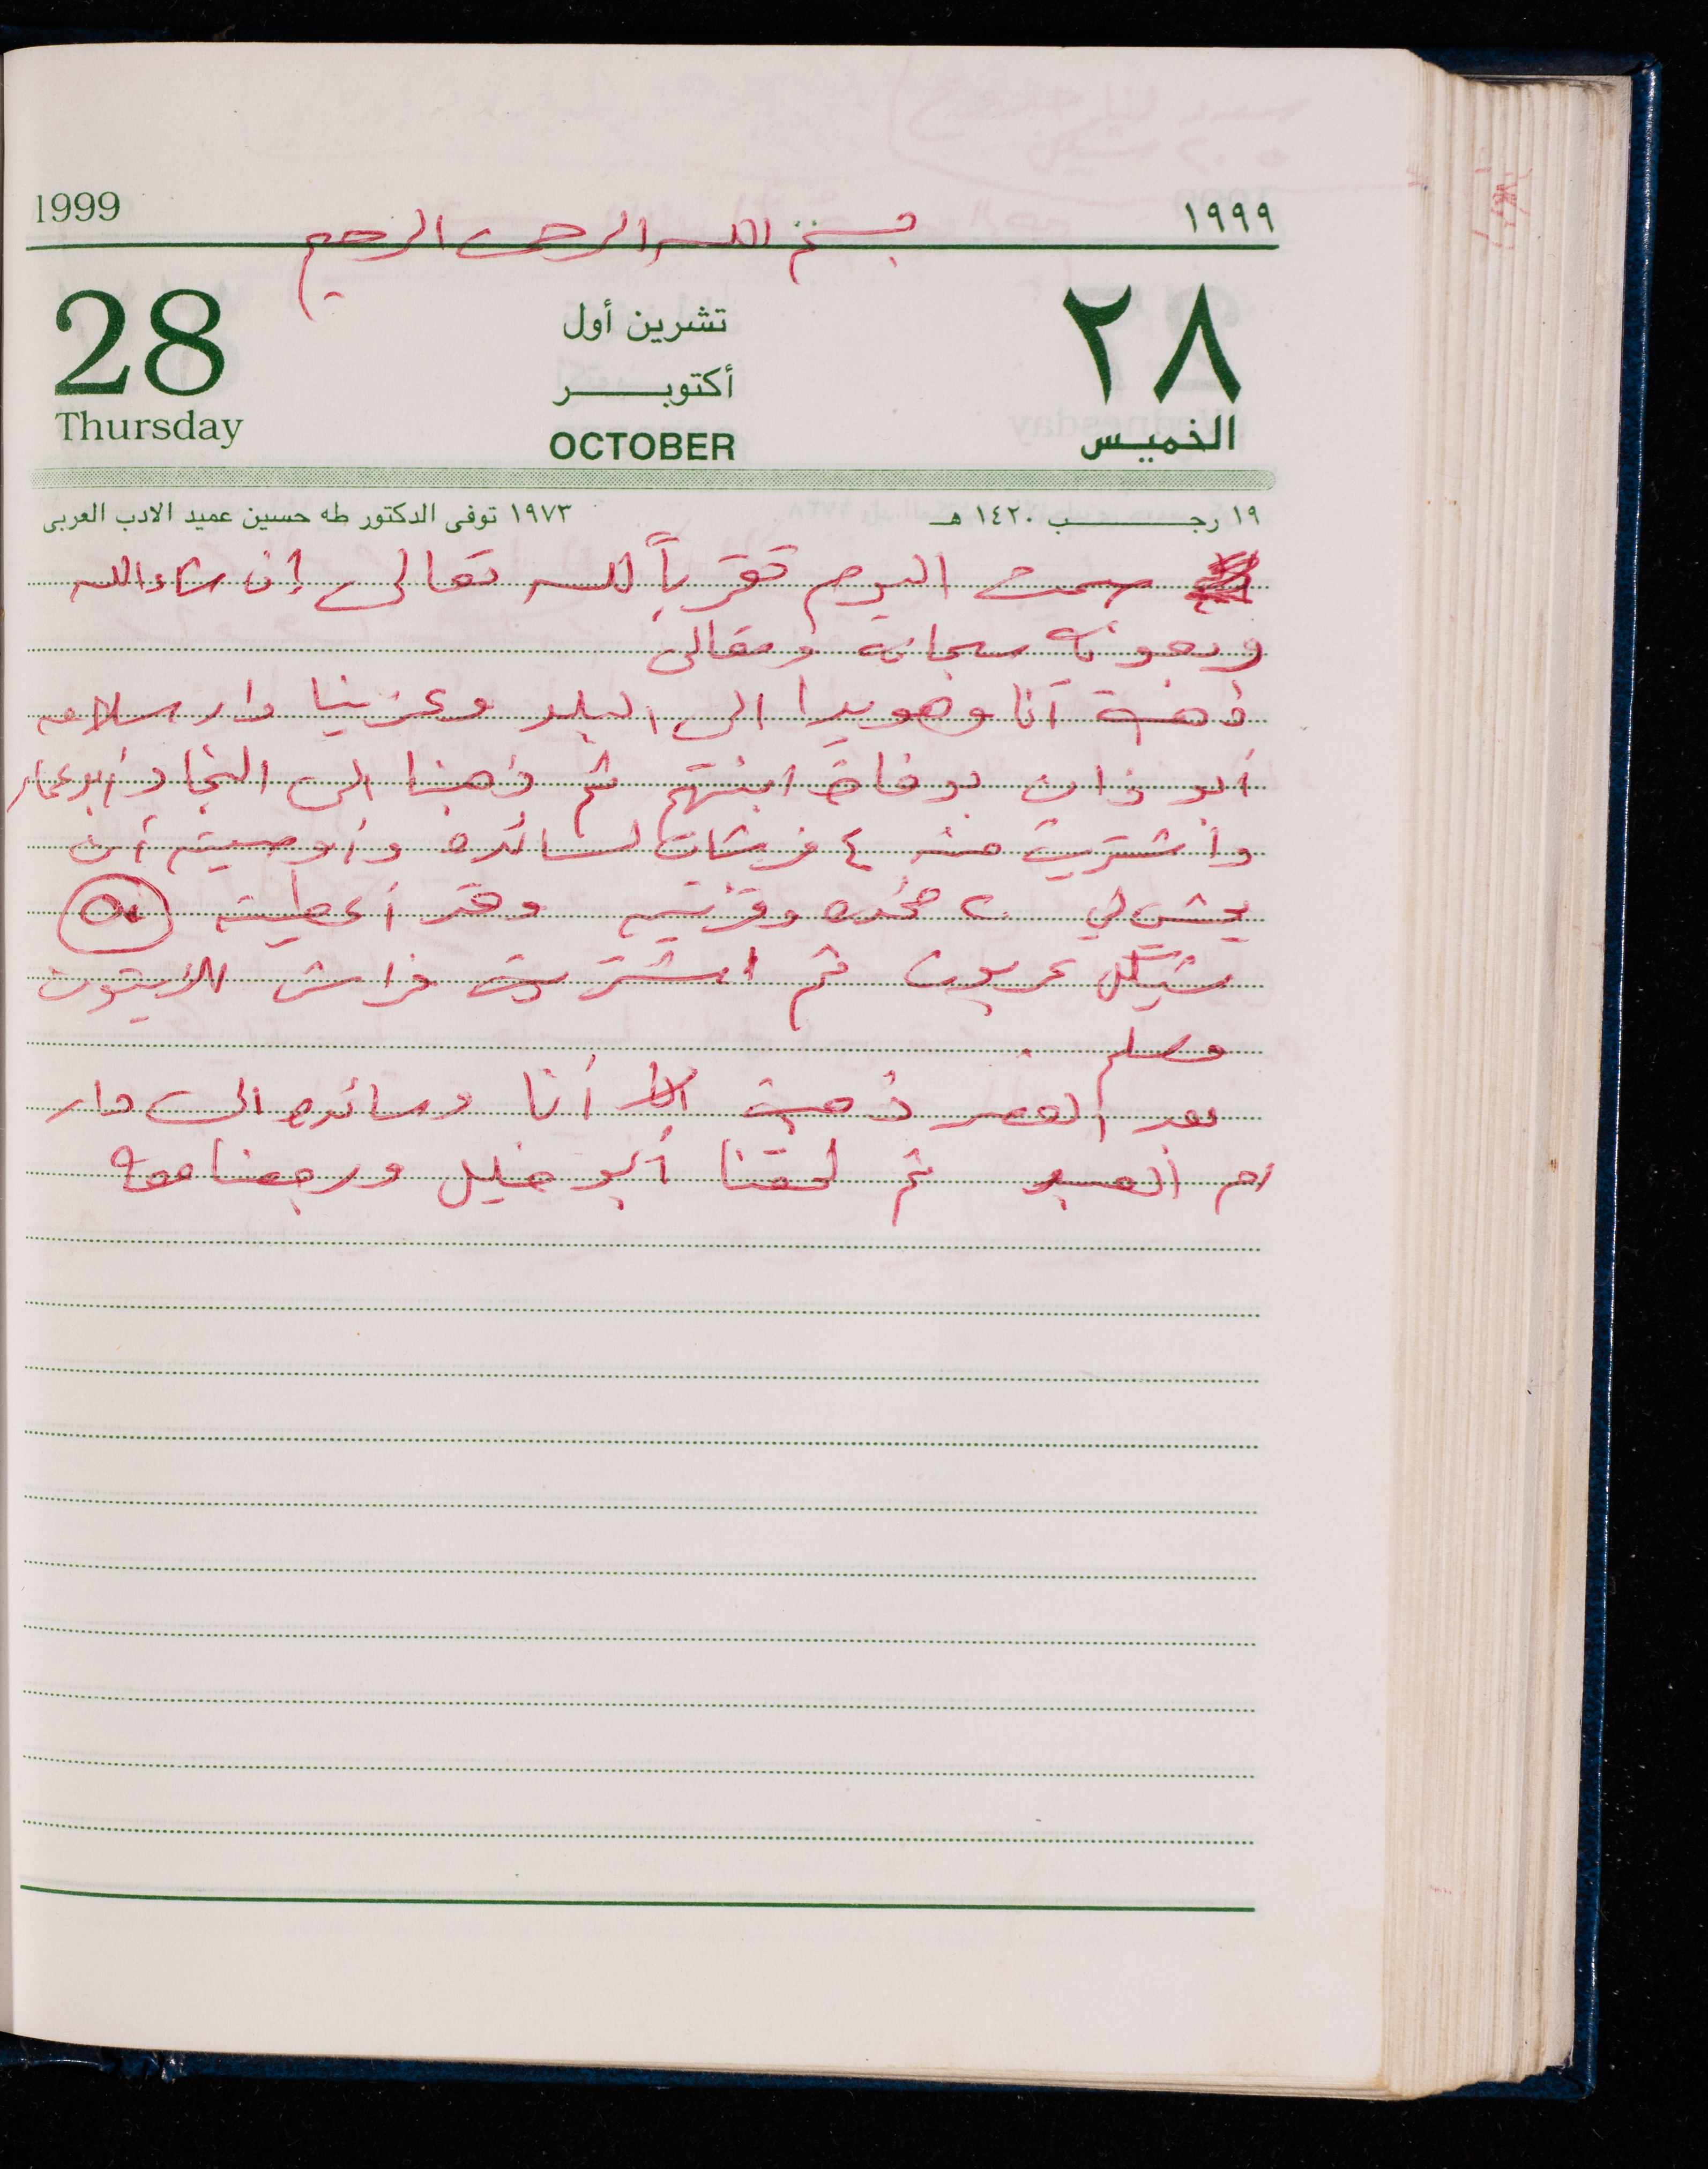 1999 ١٩٩٩
بسم الله الرحمن الرحيم
28 تشرين أول ٢٨
أكتوبر
Thursday OCTOBER الخميس
١٩ رجب ١٤٢٠ هـ ١٩٧٣ توفى الدكتور طه حسين عميد الادب العربى
صمت اليوم تقرباً لله تعالى إن شاء الله
وبعونه سبحانه وتعالى
ذهبت أنا وهويدا الى البلد وعزينا دار سلامه
أبو زان بوفاة ابنتهم ثم ذهبنا الى النجار أبو عمار
واشتريت منه ٤ فرشات لسائده وأوصيته أن
يحشي لي ٢٠ مخده وقد أعطيته ٥٠
شيكل عربون ثم اشتريت فراش للزيتون
وسلم .
بعد العصر ذهبت أنا وسائده الى دار
ام العبد ثم لحقنا أبو خليل ورجعنا معه